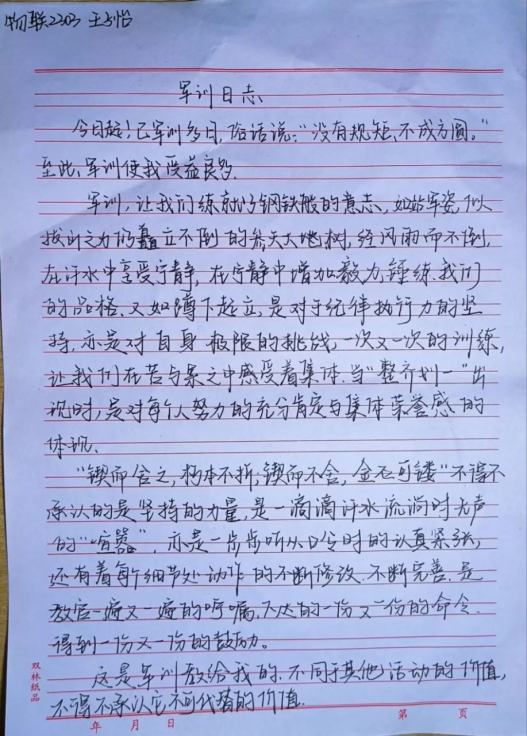 物联2303 王
军训日志
今日起!已军训多日,俗话说:"没有规矩,不成方圆。"
至此,军训使我受益良多.
军训,让我们练就了钢铁般的意志,如站军姿,似
拔山之力仍矗立不倒的参天大地树,经风雨而不倒,
在汗水中享受宁静,在宁静中增加毅力,锤练我们
的品格.又如蹲下起立,是对于纪律执行力的坚
持,亦是对自身极限的挑战,一次又一次的训练,
让我们在苦与累之中感受着集体.当"整齐划一"出
现时,是对每个人努力的充分肯定与集体荣誉感的
体现.
"锲而舍之,朽木不折,锲而不舍,金石可镂"不得不
承认的是坚持的力量,是一滴滴汗水流淌时无声
的"喧嚣",亦是一步步听从口令时的认真紧张,
还有着每个细节处动作的不断修改.不断完善.是
教官一遍又一遍的叮嘱,下达的一份又一份的命令.
得到一份又一份的鼓励.
这是军训教给我的.不同于其他活动的价值,
不得不承认它不可代替的价值.
双林纸品
年 月 日 第 页